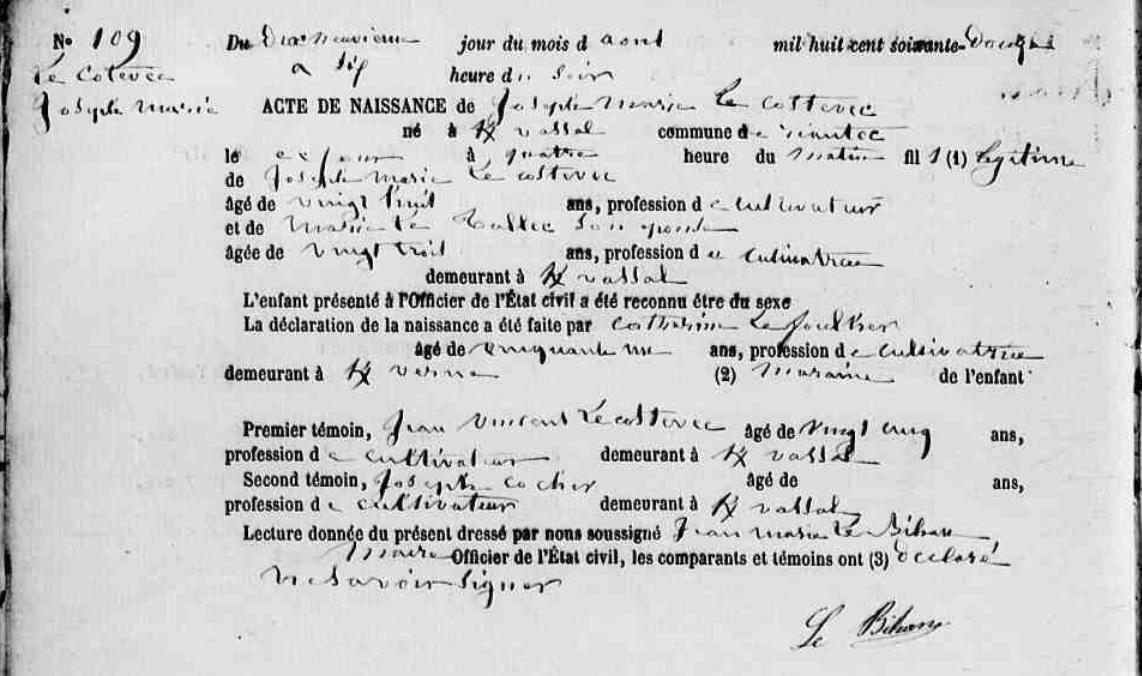 No 109
Du Dix neuvieme jour du mois d aout mil huit cent soixante-Douze
Le Cotevec
a six heure du soir
Joseph Marie
ACTE DE NAISSANCE de Joseph Marie Le Costevec
né à K vassal commune de
le ce jour à quatre heure du matin fils (1) legitime
de Joseph Marie Le Costevec
âgé de vingt huit ans, profession de cultivateur
et de Marie Le son epouse
âgée de vingt trois ans, profession de cultivatrice
demeurant à K vassal
L'enfant présenté à l'Officier de l'État civil a été reconnu être du sexe
La déclaration de la naissance a été faite par Catherine Le
âgé de cinquante un ans, profession de cultivatrice
demeurant à K verne (2) maraine de l'enfant
Premier témoin, Jean Vincent Le Costevec âgé de vingt cinq ans,
profession de cultivateur demeurant à K vassal
Second témoin, Joseph Cocher âgé de ans,
profession de cultivateur demeurant à K vassal
Lecture donnée du présent dressé par nous soussigné Jean Marie Le Bihan
Maire Officier de l'État civil, les comparants et témoins ont (3) declaré
ne savoir signer
Le Bihan